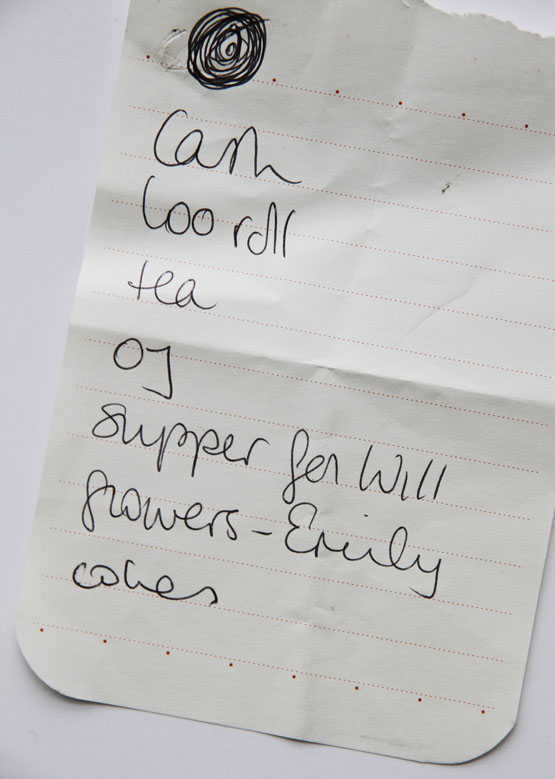 Cash
loo roll
tea
OJ
supper for Will
flowers - Emily
cakes